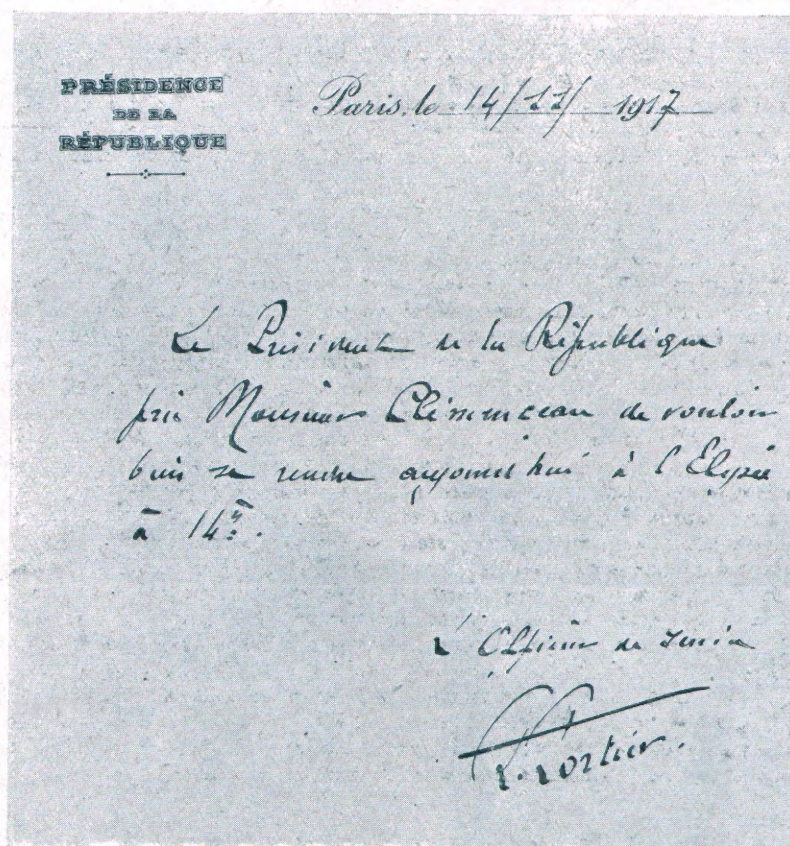 PRÉSIDENCE
DE LA
RÉPUBLIQUE
Paris, le 14/11/ 1917
Le Président de la République
prie Monsieur Clémenceau de vouloir
bien se rendre aujourd'hui à l'Élysée
à 14h.
L'Officier de Service